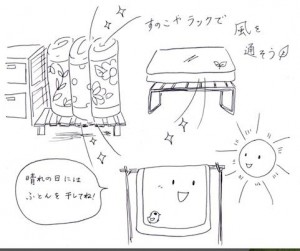 すのこやラックで
風を
通そう
晴れの日には
ふとんを干してね!